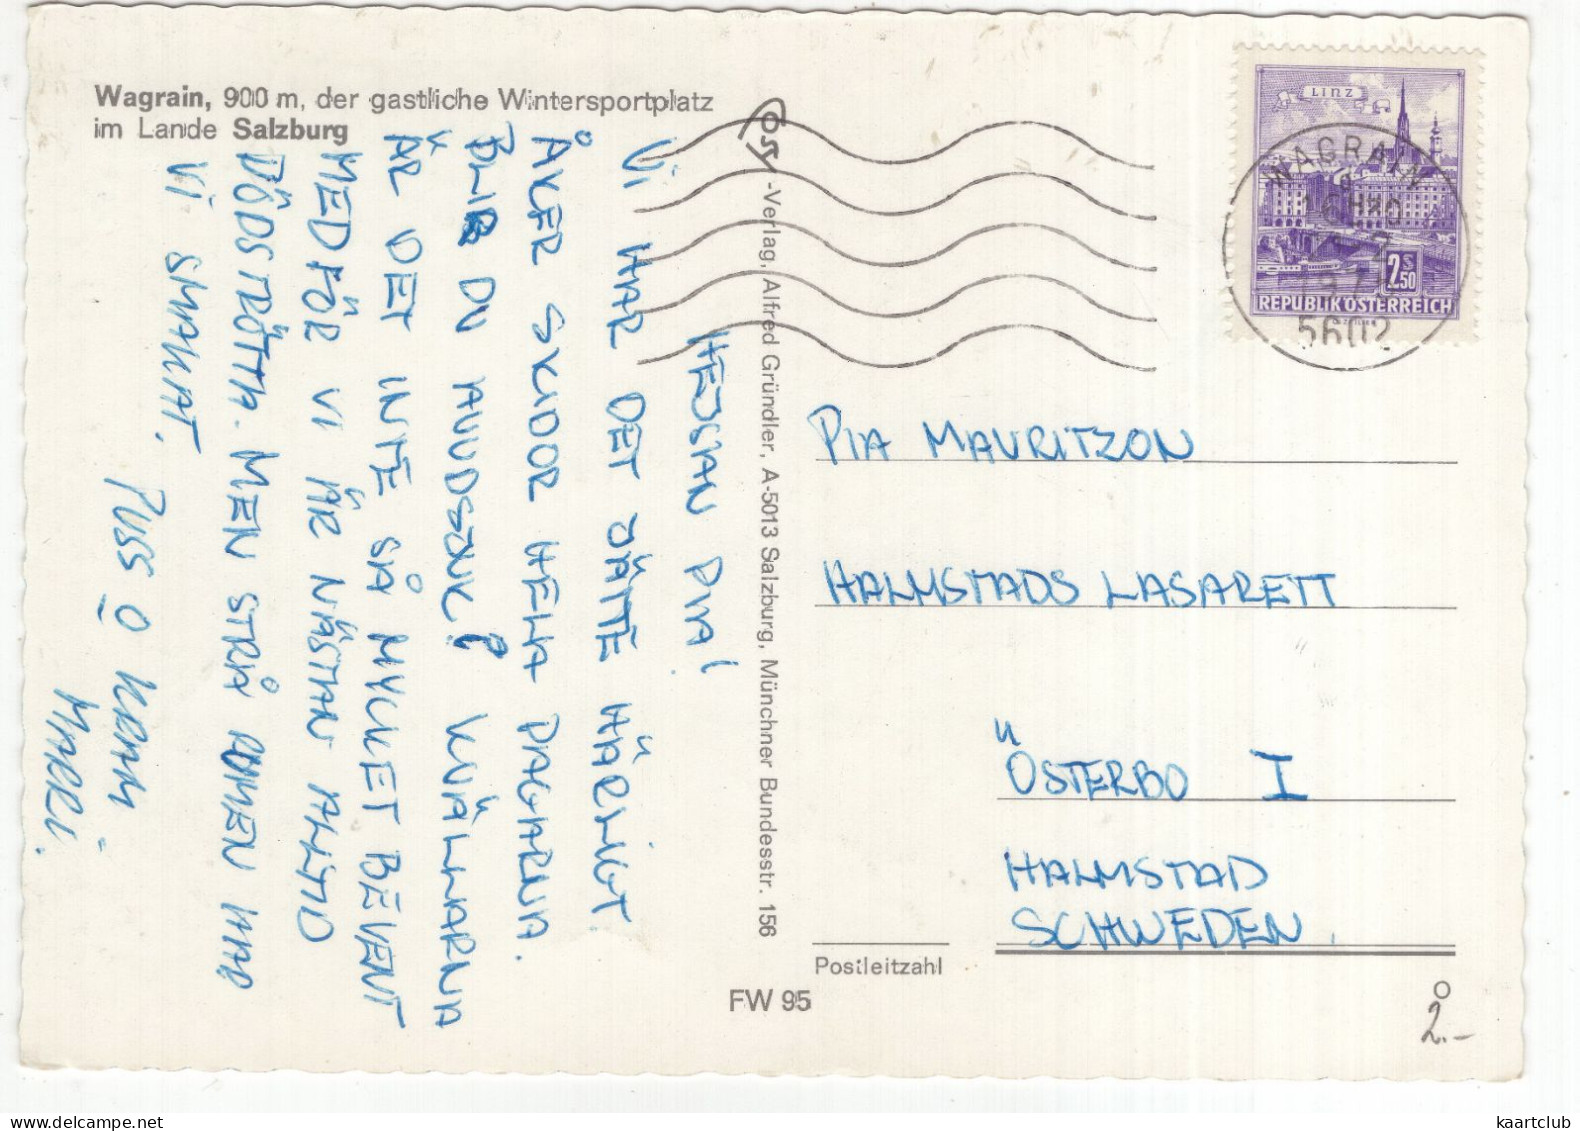 Wagrain, 900 m, der gastliche Wintersportplatz
im Lande Salzburg
HEJSAN PIA!
VI HAR DET JÄTTE HÄRLIGT.
ÅKER SKIDOR HELA DAGARNA.
BLIR DU AVUDSJUK? KVÄLLARNA
ÄR DET INTE SÅ MYCKET BEVENT
MED FÖR VI ÄR NÄSTAN ALLTID
DÖDSTRÖTTA. MEN STRÅ ROMEN HAR
VI SMAKAT.
PUSS O KRAM
MARRI.
Cosy-Verlag, Alfred Gründler, A-5013 Salzburg, Münchner Bundesstr. 156
LINZ
2 S 50
REPUBLIK ÖSTERREICH
WAGRAIN
5602
PIA MAURITZON
HALMSTADS LASARETT
ÖSTERBO I
HALMSTAD
SCHWEDEN.
Postleitzahl
FW 95
2.-
www.delcampe.net
kaartclub